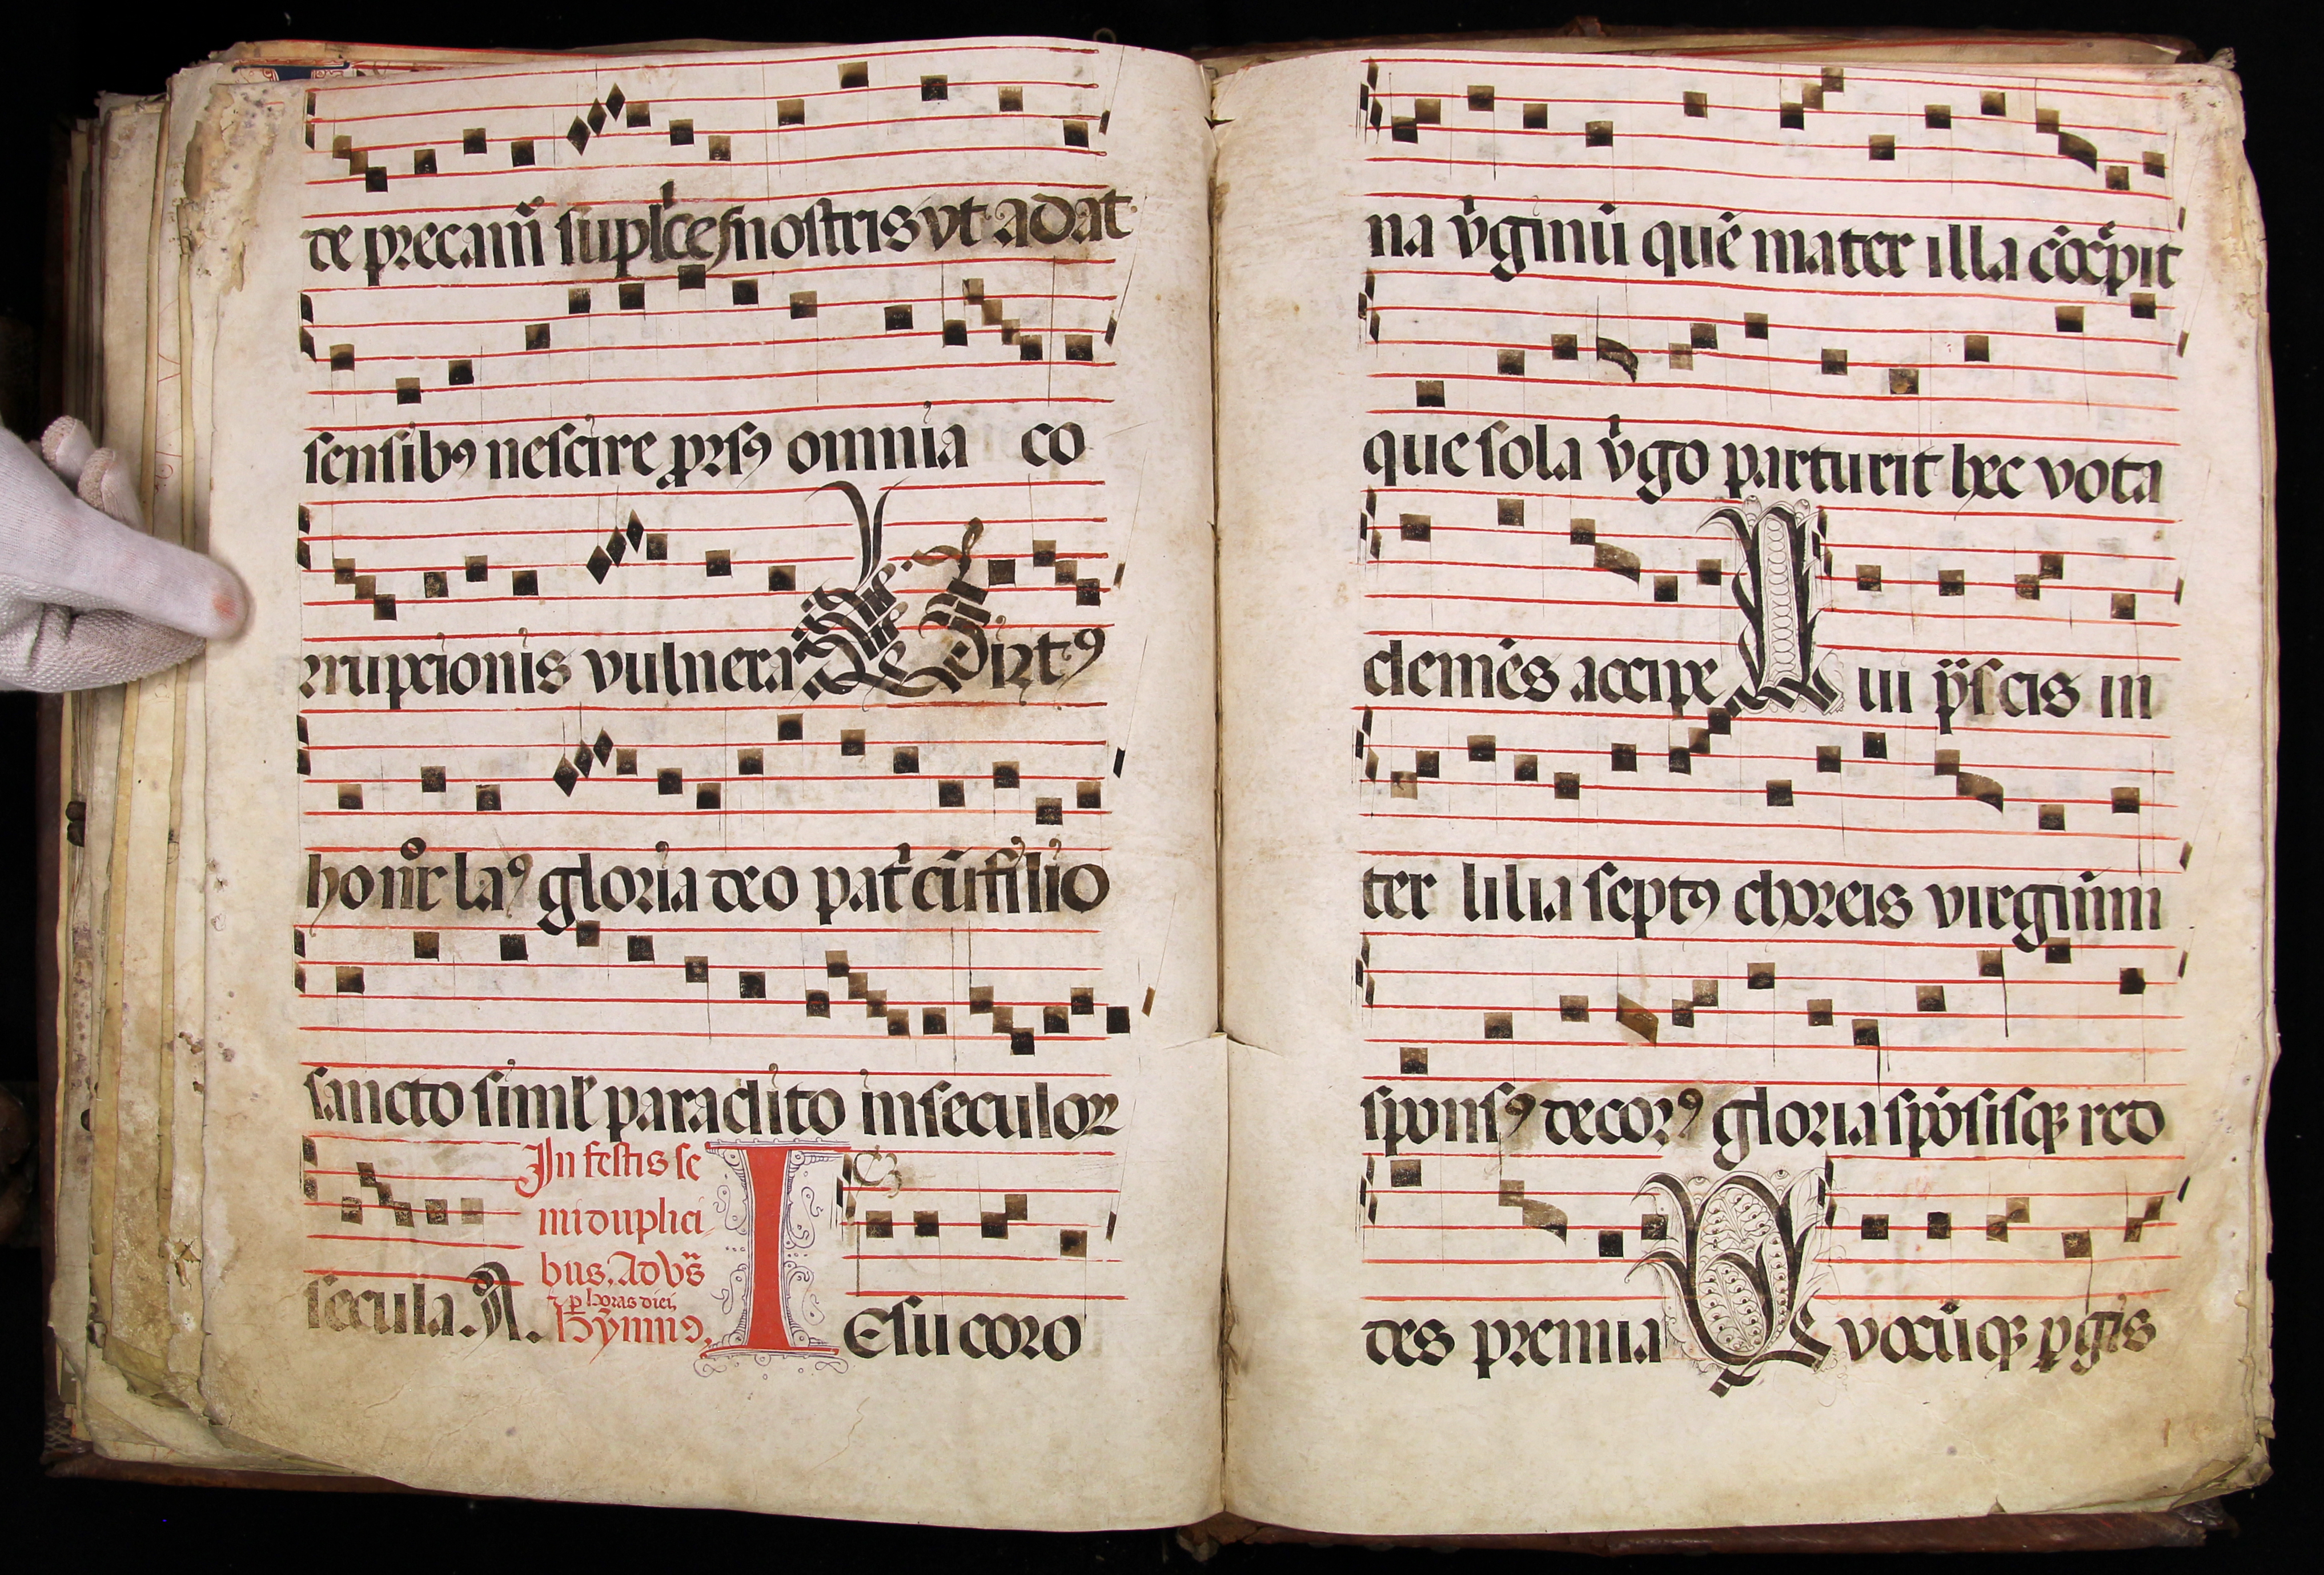 te precam̃ supl'ces nostris vt adat
sensibꝰ nescire ꝓrsꝰ omnia co
rrupcionis vulnera Uirtꝰ
honor laꝰ gloria deo pat'cũ filio
sancto siml' paraclito in seculoꝝ
secula. A.
In festis se
miduplici
bus. Ad vs̃
⁊ ꝑ horas diei,
hỹmnꝰ.
IEsu coro
na v'ginũ quẽ mater illa cõcepit
que sola v'go parturit hec vota
clemẽs accipe Qui p̃scis in
ter lilia septꝰ choreis virginũm
sponsꝰ decorꝰ gloria spõsisqꝫ red
des premia Quocũqꝫ ꝑgis